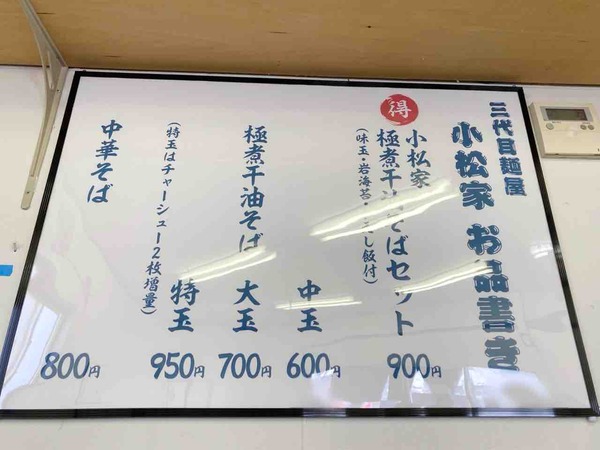 三代目麺屋
小松家 お品書き
得
小松家
極煮干油そばセット
(味玉・岩海苔・し飯付)
900円
中玉
600円
極煮干油そば 大玉
700円
特玉
(特玉はチャーシュー2枚増量)
950円
中華そば
800円